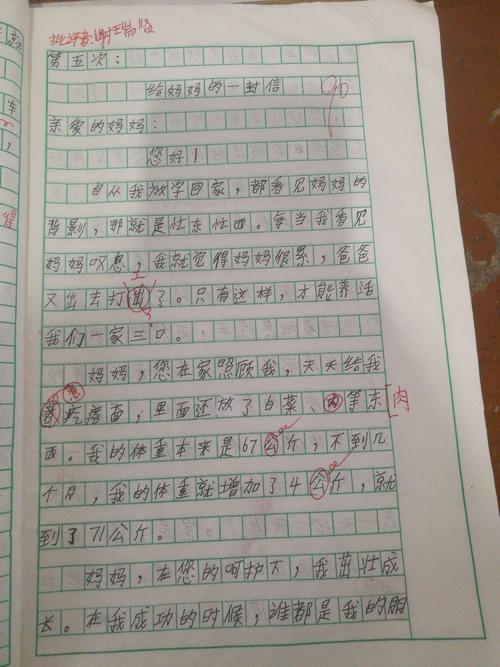 批评者：谢瑞贤
第五次：
90
给妈妈的一封信
亲爱的妈妈：
您好！
自从我放学回家，都看见妈妈的
背影，那就是忙东忙西。每当我看见
妈妈叹息，我就觉得妈妈很累，爸爸
工
又出去打出了。只有这样，才能养活
我们一家三口。
妈妈，您在家照顾我，天天给我
煮
疙瘩面，里面还放了白菜、肉等东
肉
西。我的体重本来是67公斤，不到几
个月，我的体重就增加了4公斤，就
到了71公斤。
妈妈，在您的呵护下，我茁壮成
长。在我成功的时候，谁都是我的朋